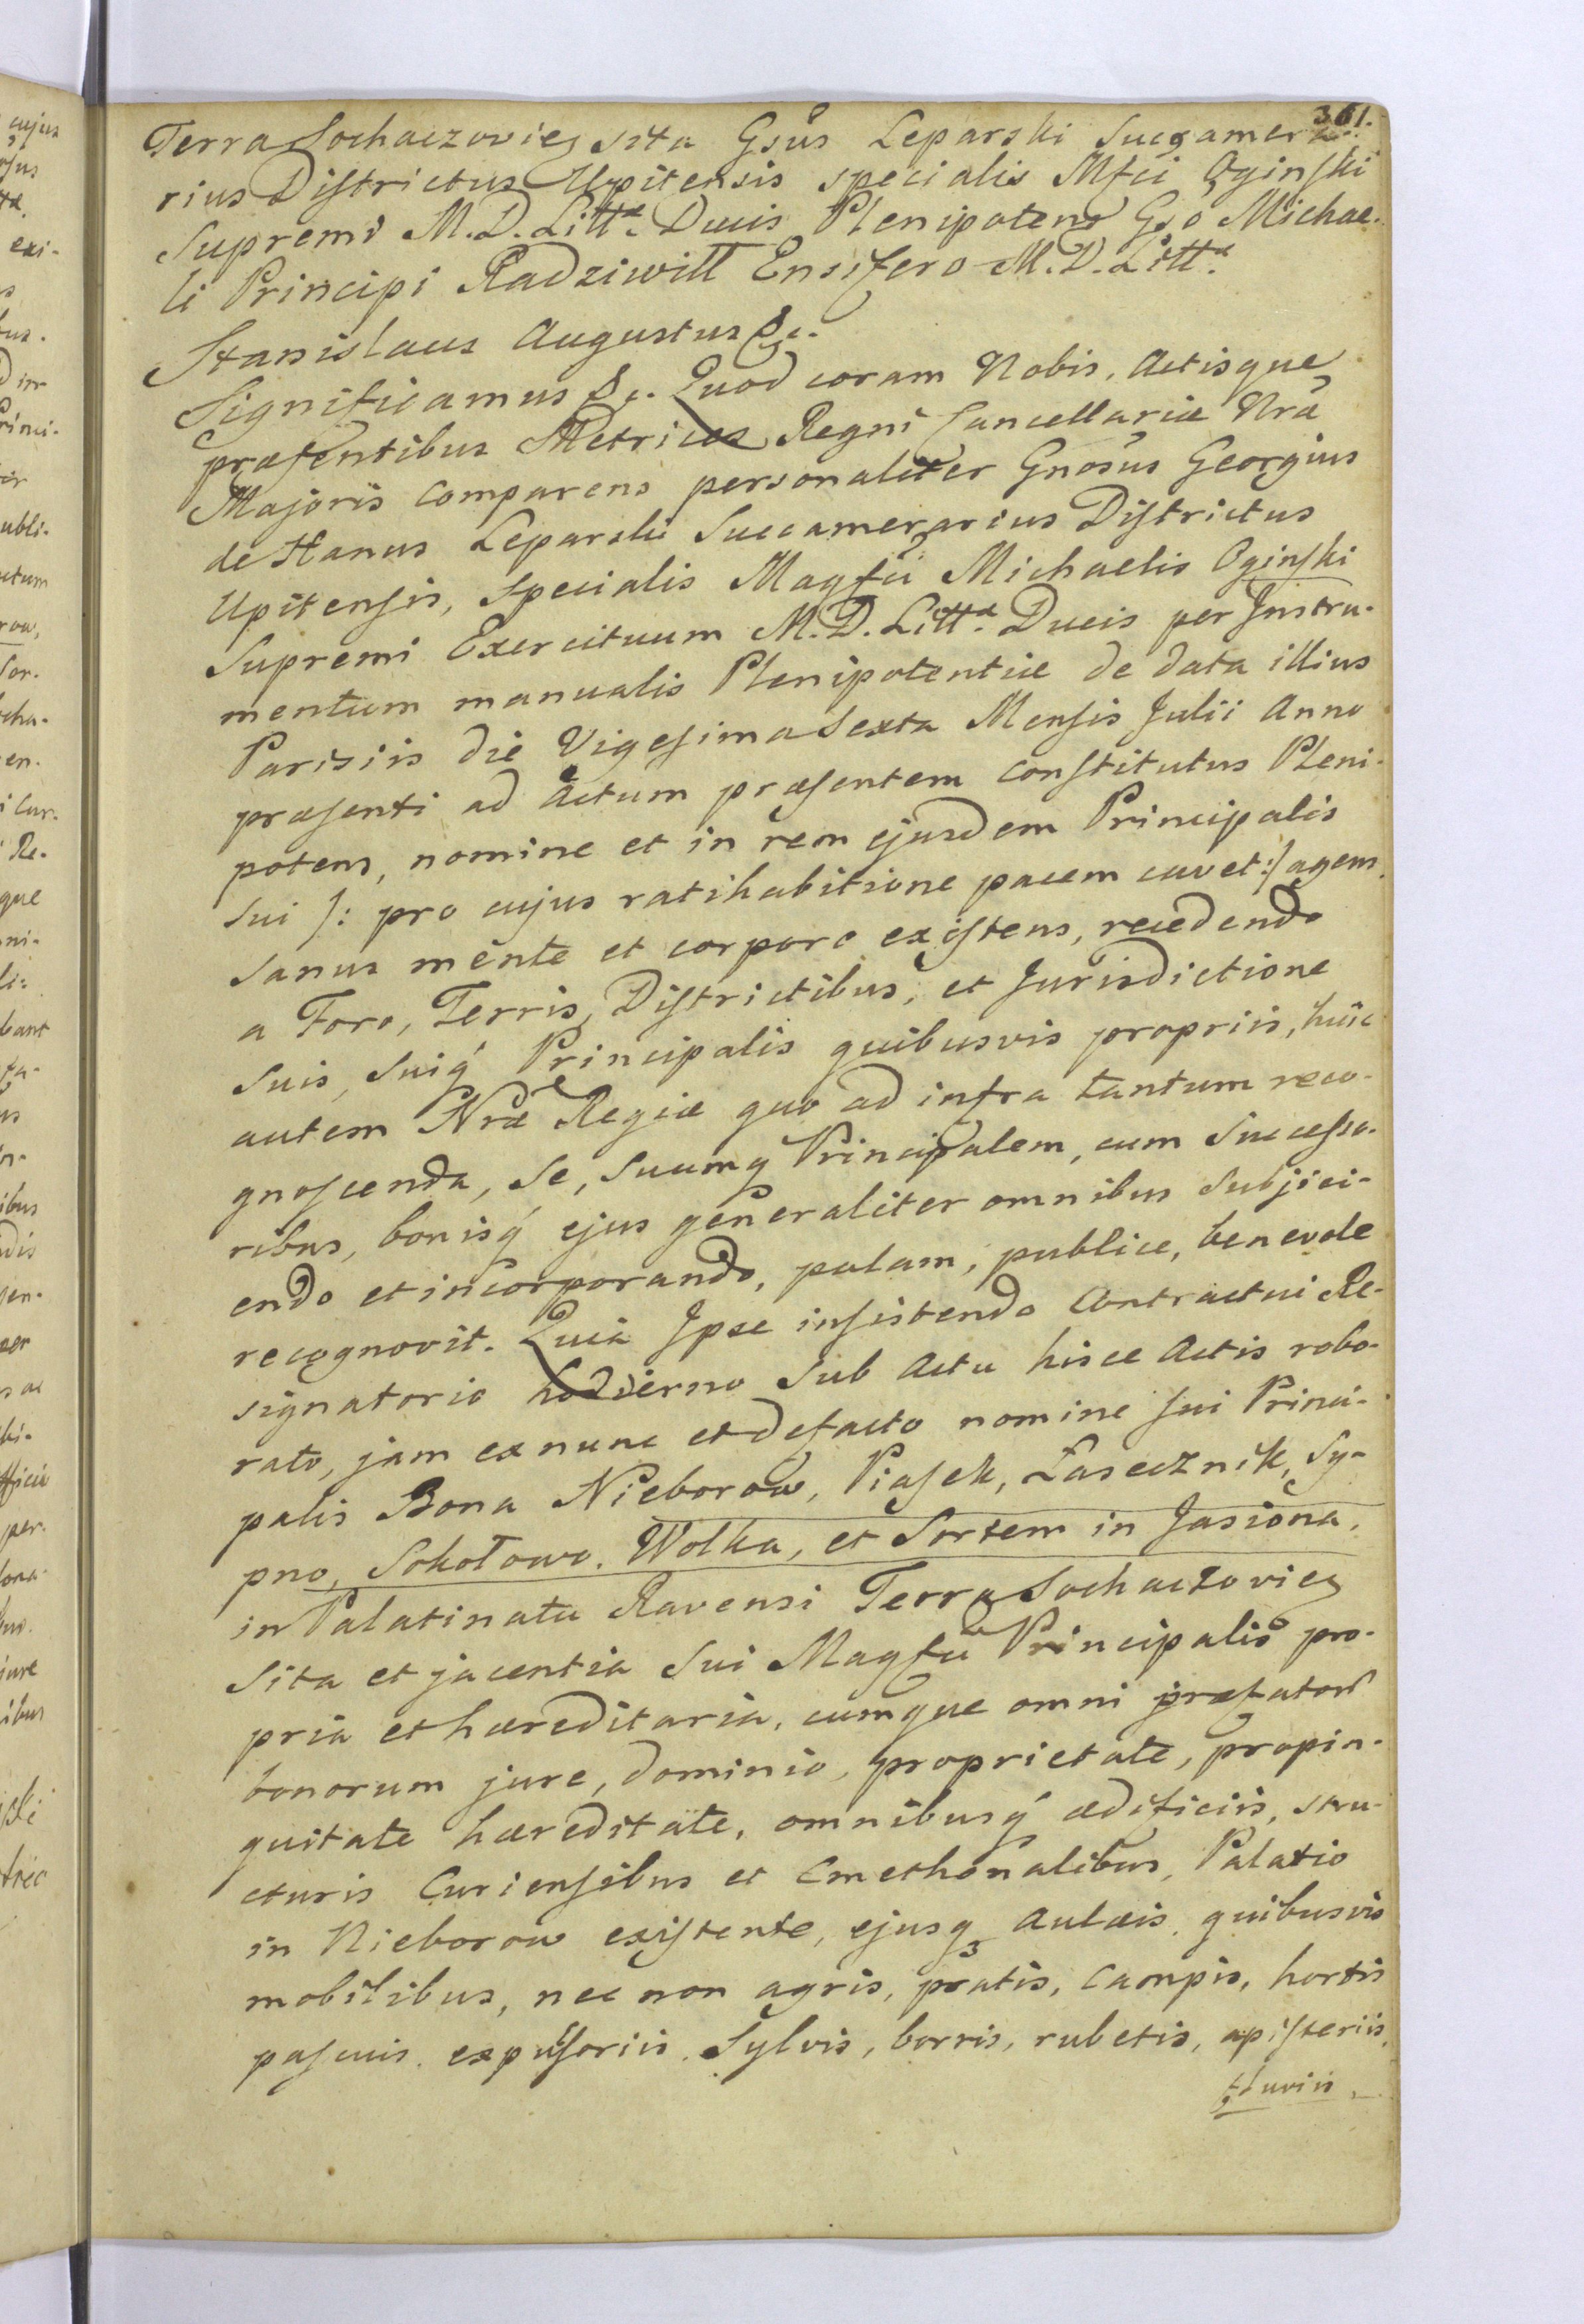 361.
Terra Sochaczovien sita Gsus Leparski Succamera-
rius Districtus Upitensis specialis Mfci Oginski
Supremi M. D. Litt. Ducis Plenipotens Gso Michae-
li Principi Radziwill Ensifero M. D. Litt.
Stanislaus Augustus &c.
Significamus &c. Quod coram Nobis, Actisque
præsentibus Metrices Regni Cancellariæ Nræ
Majoris Comparens personaliter Gnosus Georgius
de Hanus Leparski Succamerarius Districtus
Upitensis, specialis Magfci Michaelis Oginski
Supremi Exercituum M. D. Litt. Ducis per Instru-
mentum manualis Plenipotentiæ de data illius
Parisiis die Vigesima Sexta Mensis Julii Anno
præsenti ad Actum præsentem constitutus Pleni-
potens, nomine et in rem ejusdem Principalis
sui /: pro cujus ratihabitione pacem cavet :/ agens.
Sanus mente et corpore existens, recedendo
a Foro, Terris, Districtibus, et Jurisdictione
suis, suiq Principalis quibusvis propriis, huic
autem Nræ Regiæ quo ad infra tantum reco-
gnoscenda, Se, Suumq Principalem, cum Successo-
ribus, bonisq ejus generaliter omnibus Subjici-
endo et incorporando, palam, publice, benevole
recognovit. Quia Ipse insistendo Contractui Re-
signatorio hodierno Sub Actu hisce Actis robo-
rato, jam ex nunc et de facto nomine sui Princi-
palis Bona Nieborow, Piasek, Łasecznik, Sy-
pno, Sokołowo. Wolka, et Sortem in Jasiona,
in Palatinatu Ravensi Terra Sochaczovien
Sita et jacentia Sui Magfci Principalis pro-
pria et hæreditaria, cumque omni præfator
bonorum jure, dominio, proprietate, propin-
quitate hæreditate, omnibusq ædificiis, stru-
cturis Curiensibus et Cmethonalibus, Palatio
in Nieborow existente, ejusq Aulæis, quibusvis
mobilibus, nec non agris, pratis, Campis, hortis
pascuis, expulsoriis, Sylvis, borris, rubetis, apisteriis,
fluviis,